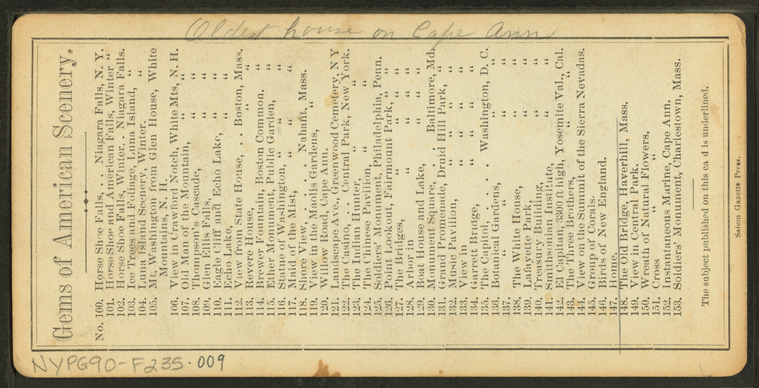 Oldest house on Cape Ann
Gems of American Scenery.
No. 100. Horse Shoe Falls, . . Niagara Falls, N. Y.
101. Horse Shoe and American Falls, Winter "
102. Horse Shoe Falls, Winter. . Niagara Falls.
103. Ice Trees and Foliage, Luna Island, "
104. Luna Island Scenery, Winter. "
105. Mt. Washington from Glen House, White
Mountains, N. H.
106. View in Crawford Notch, White Mts, N. H.
107. Old Man of the Mountain, " "
108. Thompson's Cascade, " "
109. Glen Ellis Falls, " "
110. Eagle Cliff and Echo Lake, " "
111. Echo Lake, " "
112. View from State House, . . Boston, Mass.
113. Revere House, " "
114. Brewer Fountain, Boston Common. "
115. Ether Monument, Public Garden, "
116. Statue of Washington, " "
117. Maid of the Mist, " "
118. Shore View, . . . Nahant, Mass.
119. View in the Maolis Gardens, "
120. Willow Road, Cape Ann.
121. Landscape Ave., Greenwood Cemetery, N Y
122. The Casino, Central Park, New York.
123. The Indian Hunter, " "
124. The Chinese Pavilion, " "
125. Soldiers' Monument, Philadelphia, Penn.
126. Point Lookout, Fairmount Park, " "
127. The Bridges, " " "
128. Arbor in " " "
129. Boat House and Lake, " "
130. Monument Square, . . Baltimore, Md.
131. Grand Promenade, Druid Hill Park, "
132. Music Pavilion, " "
133. View in " "
134. Garrett Bridge, " "
135. The Capitol, . . . Washington, D. C.
136. Botanical Gardens, "
137. " " "
138. The White House, "
139. Lafayette Park, "
140. Treasury Building, "
141. Smithsonian Institute, "
142. El Capitan, 3300 ft high, Yosemite Val., Cal.
143. The Three Brothers, " "
144. View on the Summit of the Sierra Nevadas.
145. Group of Corals.
146. Birds of New England.
147. Home,
148. The Old Bridge, Haverhill, Mass.
149. View in Central Park.
150. Wreath of Natural Flowers.
151. Cross " "
152. Instantaneous Marine, Cape Ann.
153. Soldiers' Monument, Charlestown, Mass.
The subject published on this ca d is underlined.
Salem Gazette Press.
NYPG90-F235.009